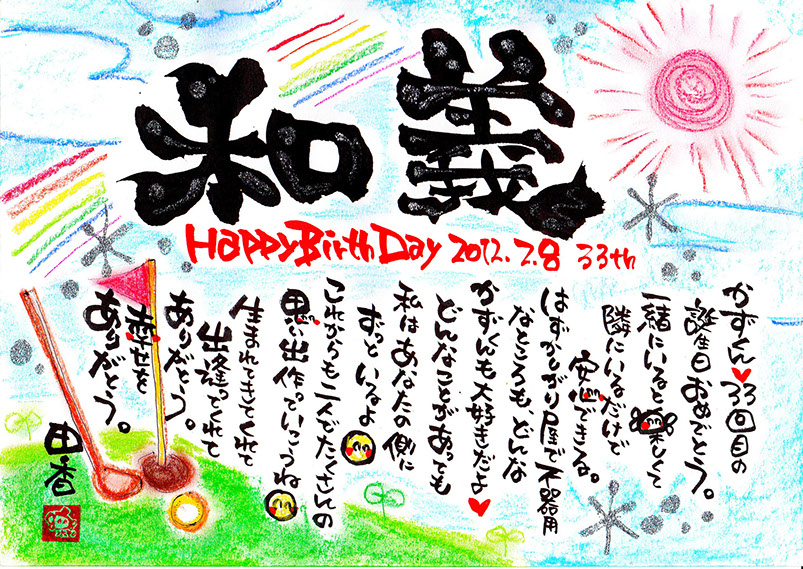 和義
HAPPY BirthDay 2012.7.8 33th
かずくん♥33回目の
誕生日おめでとう。
一緒にいると楽しくて
隣にいるだけで
安心できる。
はずかしがり屋で不器用
なところも、どんな
かずくんも大好きだよ♥
どんなことがあっても
私はあなたの側に
ずっといるよ
これからも二人でたくさんの
思い出作っていこうね
生まれてきてくれて
出逢ってくれて
ありがとう。
幸せを
ありがとう。
由香